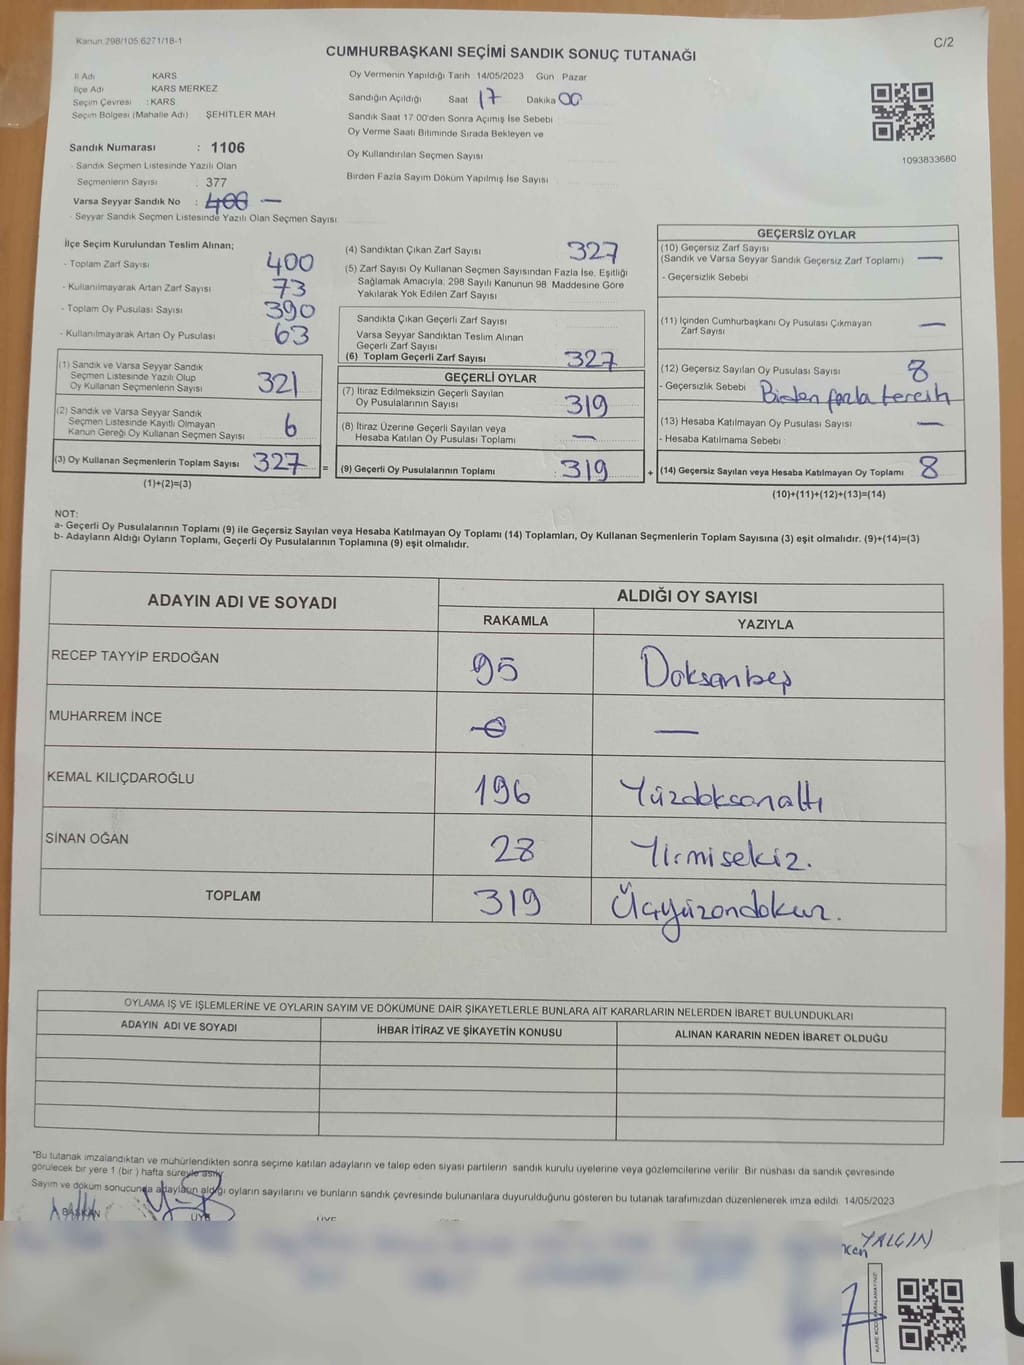 Kanun 298/105 6271/18-1
C/2
CUMHURBAŞKANI SEÇİMİ SANDIK SONUÇ TUTANAĞI
İl Adı KARS
İlçe Adı KARS MERKEZ
Seçim Çevresi : KARS
Seçim Bölgesi (Mahalle Adı) ŞEHİTLER MAH
Sandık Numarası : 1106
- Sandık Seçmen Listesinde Yazılı Olan
Seçmenlerin Sayısı : 377
Varsa Seyyar Sandık No : 400 —
- Seyyar Sandık Seçmen Listesinde Yazılı Olan Seçmen Sayısı
Oy Vermenin Yapıldığı Tarih 14/05/2023 Gün Pazar
Sandığın Açıldığı Saat 17 Dakika 00
Sandık Saat 17 00'den Sonra Açımış İse Sebebi
Oy Verme Saati Bitiminde Sırada Bekleyen ve
Oy Kullandırılan Seçmen Sayısı
Birden Fazla Sayım Döküm Yapılmış İse Sayısı
1093833680
İlçe Seçim Kurulundan Teslim Alınan;
- Toplam Zarf Sayısı 400
- Kullanılmayarak Artan Zarf Sayısı 73
- Toplam Oy Pusulası Sayısı 390
- Kullanılmayarak Artan Oy Pusulası 63
(1) Sandık ve Varsa Seyyar Sandık
Seçmen Listesinde Yazılı Olup
Oy Kullanan Seçmenlerin Sayısı 321
(2) Sandık ve Varsa Seyyar Sandık
Seçmen Listesinde Kayıtlı Olmayan
Kanun Gereği Oy Kullanan Seçmen Sayısı 6
(3) Oy Kullanan Seçmenlerin Toplam Sayısı 327 =
(1)+(2)=(3)
(4) Sandıktan Çıkan Zarf Sayısı 327
(5) Zarf Sayısı Oy Kullanan Seçmen Sayısından Fazla İse, Eşitliği
Sağlamak Amacıyla, 298 Sayılı Kanunun 98. Maddesine Göre
Yakılarak Yok Edilen Zarf Sayısı
Sandıkta Çıkan Geçerli Zarf Sayısı
Varsa Seyyar Sandıktan Teslim Alınan
Geçerli Zarf Sayısı
(6) Toplam Geçerli Zarf Sayısı 327
GEÇERLİ OYLAR
(7) İtiraz Edilmeksizin Geçerli Sayılan
Oy Pusulalarının Sayısı 319
(8) İtiraz Üzerine Geçerli Sayılan veya
Hesaba Katılan Oy Pusulası Toplamı —
(9) Geçerli Oy Pusulalarının Toplamı 319 +
GEÇERSİZ OYLAR
(10) Geçersiz Zarf Sayısı
(Sandık ve Varsa Seyyar Sandık Geçersiz Zarf Toplamı) —
- Geçersizlik Sebebi
(11) İçinden Cumhurbaşkanı Oy Pusulası Çıkmayan
Zarf Sayısı —
(12) Geçersiz Sayılan Oy Pusulası Sayısı 8
- Geçersizlik Sebebi Birden fazla tercih
(13) Hesaba Katılmayan Oy Pusulası Sayısı —
- Hesaba Katılmama Sebebi
(14) Geçersiz Sayılan veya Hesaba Katılmayan Oy Toplamı 8
(10)+(11)+(12)+(13)=(14)
NOT:
a- Geçerli Oy Pusulalarının Toplamı (9) ile Geçersiz Sayılan veya Hesaba Katılmayan Oy Toplamı (14) Toplamları, Oy Kullanan Seçmenlerin Toplam Sayısına (3) eşit olmalıdır. (9)+(14)=(3)
b- Adayların Aldığı Oyların Toplamı, Geçerli Oy Pusulalarının Toplamına (9) eşit olmalıdır.
ADAYIN ADI VE SOYADI
ALDIĞI OY SAYISI
RAKAMLA YAZIYLA
RECEP TAYYİP ERDOĞAN 95 Doksanbeş
MUHARREM İNCE 0 —
KEMAL KILIÇDAROĞLU 196 Yüzdoksanaltı
SİNAN OĞAN 28 Yirmisekiz.
TOPLAM 319 Üçyüzondokuz.
OYLAMA İŞ VE İŞLEMLERİNE VE OYLARIN SAYIM VE DÖKÜMÜNE DAİR ŞİKAYETLERLE BUNLARA AİT KARARLARIN NELERDEN İBARET BULUNDUKLARI
ADAYIN ADI VE SOYADI İHBAR İTİRAZ VE ŞİKAYETİN KONUSU ALINAN KARARIN NEDEN İBARET OLDUĞU
"Bu tutanak imzalandıktan ve mühürlendikten sonra seçime katılan adayların ve talep eden siyasi partilerin sandık kurulu üyelerine veya gözlemcilerine verilir. Bir nüshası da sandık çevresinde
görülecek bir yere 1 (bir ) hafta süreyle asılır
Sayım ve döküm sonucunda adayların aldığı oyların sayılarını ve bunların sandık çevresinde bulunanlara duyurulduğunu gösteren bu tutanak tarafımızdan düzenlenerek imza edildi 14/05/2023
BAŞKAN ÜYE ÜYE
YALÇIN